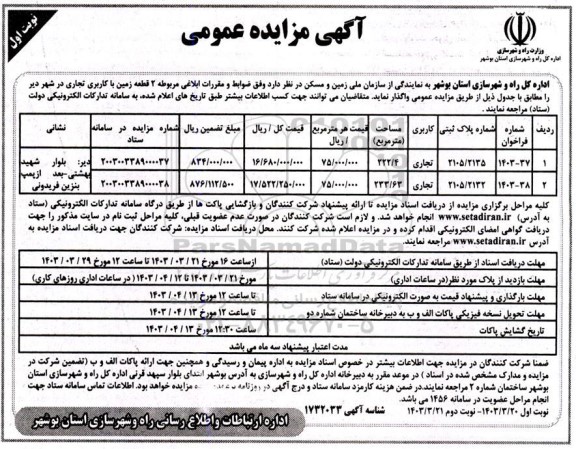 نوبت اول
آگهی مزایده عمومی
وزارت راه و شهرسازی
اداره کل راه و شهرسازی استان بوشهر
اداره کل راه و شهرسازی استان بوشهر به نمایندگی از سازمان ملی زمین و مسکن در نظر دارد وفق ضوابط و مقررات ابلاغی مربوطه ۲ قطعه زمین با کاربری تجاری در شهر دیر
را مطابق با جدول ذیل از طریق مزایده عمومی واگذار نماید. متقاضیان می توانند جهت کسب اطلاعات بیشتر طبق تاریخ های اعلام شده، به سامانه تدارکات الکترونیکی دولت
(ستاد) مراجعه نمایند.
ردیف شماره فراخوان شماره پلاک ثبتی کاربری مساحت (مترمربع) قیمت هر مترمربع / ریال قیمت کل / ریال مبلغ تضمین ریال شماره مزایده در سامانه ستاد نشانی
۱ ۱۴۰۳-۳۷ ۲۱۰۵/۲۱۳۵ تجاری ۲۲۲/۴ ۷۵/۰۰۰/۰۰۰ ۱۶/۶۸۰/۰۰۰/۰۰۰ ۸۳۴/۰۰۰/۰۰۰ ۲۰۰۳۰۰۳۳۸۹۰۰۰۰۳۷ دیر: بلوار شهید بهشتی-بعد ازپمپ بنزین فریدونی
۲ ۱۴۰۳-۳۸ ۲۱۰۵/۲۱۳۲ تجاری ۲۳۳/۶۳ ۷۵/۰۰۰/۰۰۰ ۱۷/۵۲۲/۲۵۰/۰۰۰ ۸۷۶/۱۱۲/۵۰۰ ۲۰۰۳۰۰۳۳۸۹۰۰۰۰۳۸
کلیه مراحل برگزاری مزایده از دریافت اسناد مزایده تا ارائه پیشنهاد شرکت کنندگان و بازگشایی پاکت ها از طریق درگاه سامانه تدارکات الکترونیکی (ستاد)
به آدرس) www.setadiran.ir انجام خواهد شد. و لازم است شرکت کنندگان در صورت عدم عضویت قبلی، کلیه مراحل ثبت نام در سایت مذکور را جهت
دریافت گواهی امضای الکترونیکی اقدام کرده و در مزایده اعلام شده شرکت کنند. محل دریافت اسناد مزایده: شرکت کنندگان جهت دریافت اسناد مزایده به
آدرس www.setadiran.ir مراجعه نمایند.
مهلت دریافت اسناد از طریق سامانه تدارکات الکترونیکی دولت (ستاد) ازساعت ۱۶ مورخ ۲۱ / ۰۳ / ۱۴۰۳ تا ساعت ۱۲ مورخ ۲۹ / ۰۳ / ۱۴۰۳
مهلت بازدید از پلاک مورد نظر(در ساعات اداری) مورخ ۲۱ / ۰۳ / ۱۴۰۳ تا ۱۲ / ۰۴ / ۱۴۰۳ ( در ساعات اداری روزهای کاری)
مهلت بارگذاری و پیشنهاد قیمت به صورت الکترونیکی در سامانه ستاد تا ساعت ۱۲ مورخ ۱۳ / ۰۴ / ۱۴۰۳
مهلت تحویل نسخه فیزیکی پاکات الف و ب به دبیرخانه ساختمان شماره دو تا ساعت ۱۲ مورخ ۱۳ / ۰۴ / ۱۴۰۳
تاریخ گشایش پاکات ساعت ۱۲:۳۰ مورخ ۱۳ / ۰۴ / ۱۴۰۳
مدت اعتبار پیشنهاد سه ماه می باشد
ضمنا شرکت کنندگان در مزایده جهت اطلاعات بیشتر در خصوص اسناد مزایده به اداره پیمان و رسیدگی و همچنین جهت ارائه پاکات الف و ب (تضمین شرکت در
مزایده و مدارک مشخص شده در اسناد ) در موعد مقرر به دبیرخانه اداره کل راه و شهرسازی به آدرس بوشهر ابتدای بلوار سپهبد قرنی اداره کل راه و شهرسازی استان
بوشهر ساختمان شماره ۲ مراجعه نمایند.در ضمن هزینه کارمزد سامانه ستاد و درج آگهی در روزنامه مزایده خواهد بود. اطلاعات تماس سامانه ستاد جهت
انجام مراحل عضویت در سامانه ۱۴۵۶ می باشد.
نوبت اول ۱۴۰۳/۳/۲۰- نوبت دوم ۱۴۰۳/۳/۲۱ شناسه آگهی ۱۷۳۲۰۳۳
اداره ارتباطات واطلاع رسانی راه وشهرسازی استان بوشهر
ParsNamadData